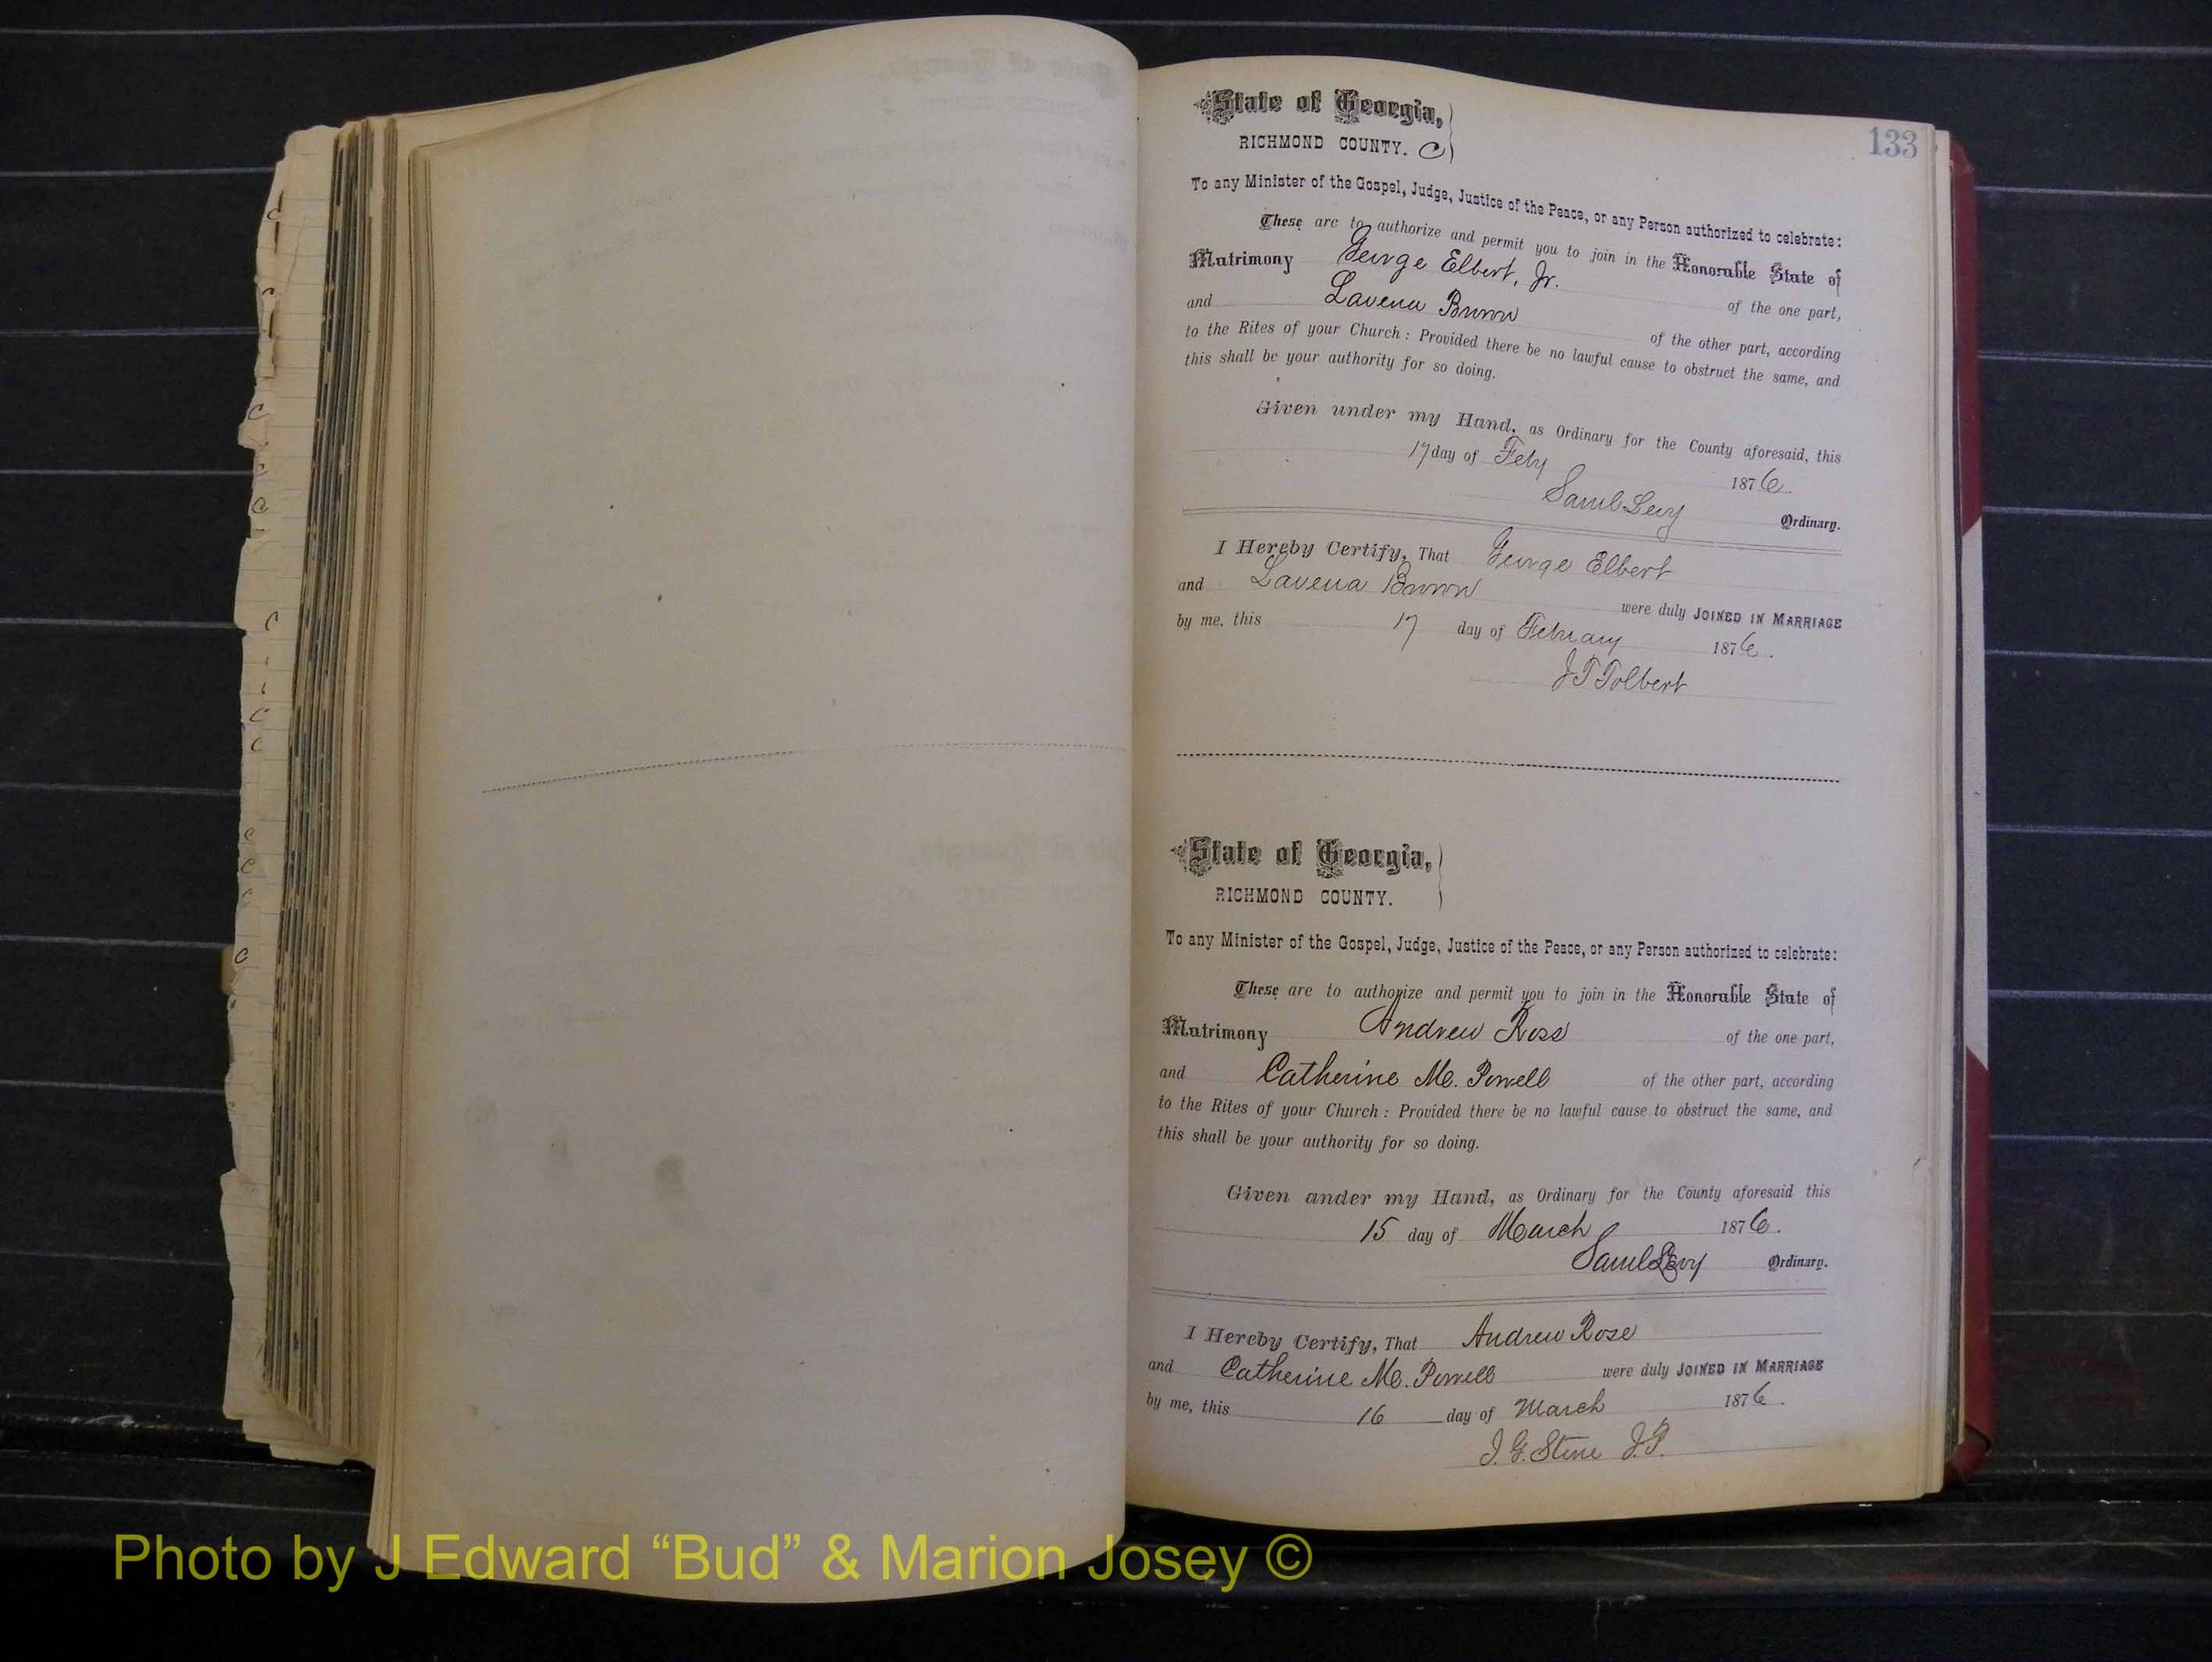 133
State of Georgia,
RICHMOND COUNTY. C
To any Minister of the Gospel, Judge, Justice of the Peace, or any Person authorized to celebrate:
These are to authorize and permit you to join in the Honorable State of
Matrimony George Elbert, Jr. of the one part,
and Lavena Brown of the other part, according
to the Rites of your Church: Provided there be no lawful cause to obstruct the same, and
this shall be your authority for so doing.
Given under my Hand, as Ordinary for the County aforesaid, this
17 day of Feby 1876.
Saml Levy Ordinary.
I Hereby Certify, That George Elbert
and Lavena Brown were duly JOINED IN MARRIAGE
by me, this 17 day of February 1876.
J T Tolbert
State of Georgia,
RICHMOND COUNTY.
To any Minister of the Gospel, Judge, Justice of the Peace, or any Person authorized to celebrate:
These are to authorize and permit you to join in the Honorable State of
Matrimony Andrew Ross of the one part,
and Catherine M. Powell of the other part, according
to the Rites of your Church: Provided there be no lawful cause to obstruct the same, and
this shall be your authority for so doing.
Given under my Hand, as Ordinary for the County aforesaid this
15 day of March 1876.
Saml Levy Ordinary.
I Hereby Certify, That Andrew Rose
and Catherine M. Powell were duly JOINED IN MARRIAGE
by me, this 16 day of March 1876.
J. G. Stone J.P.
Photo by J Edward “Bud” & Marion Josey ©